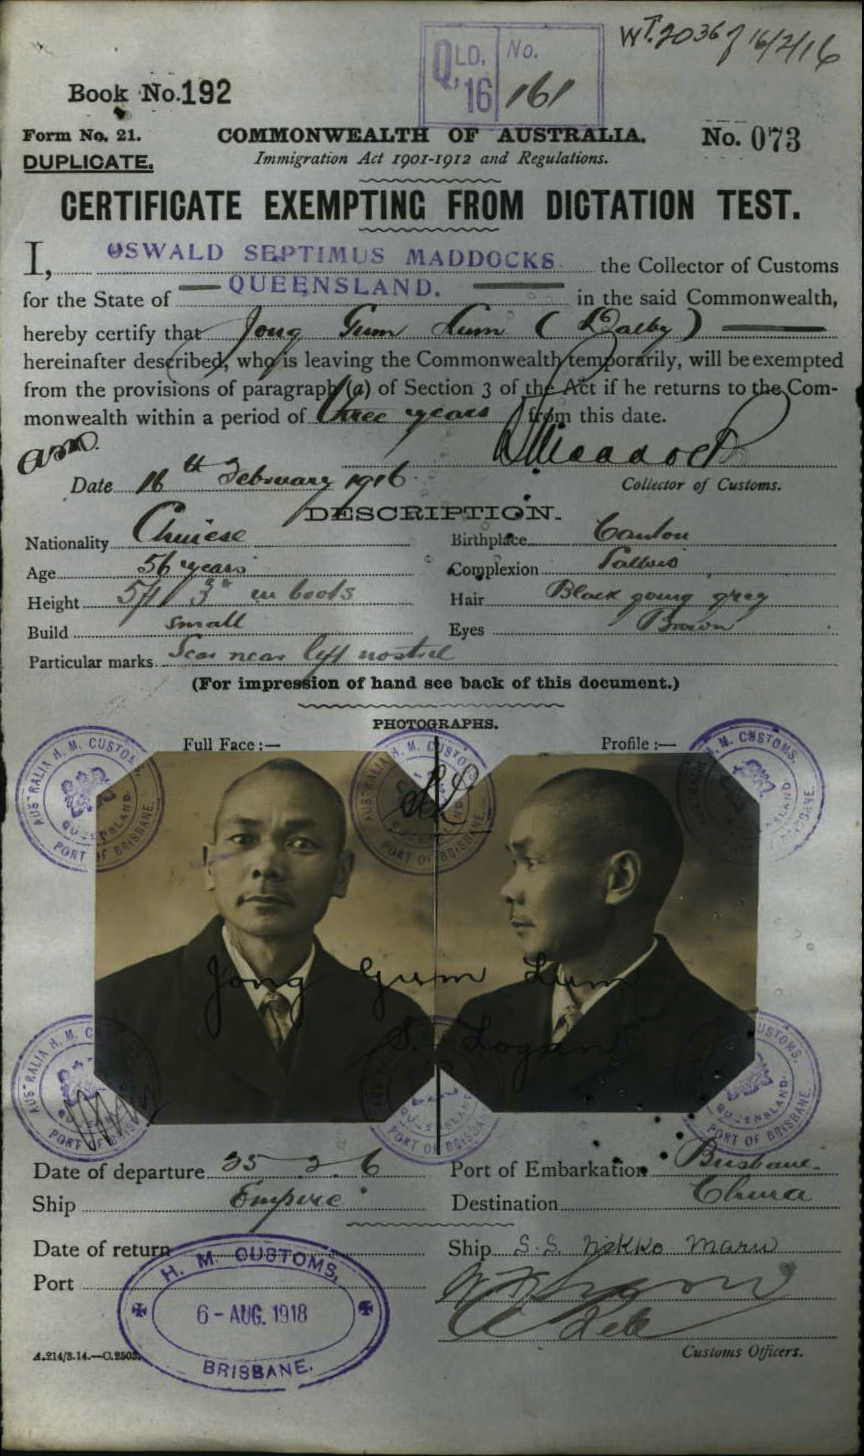 WT. 2036 of 16/2/16
QLD. No.
'16 161
Book No. 192
Form No. 21.
COMMONWEALTH OF AUSTRALIA.
No. 073
DUPLICATE.
Immigration Act 1901-1912 and Regulations.
CERTIFICATE EXEMPTING FROM DICTATION TEST.
I, OSWALD SEPTIMUS MADDOCKS the Collector of Customs
for the State of QUEENSLAND. in the said Commonwealth,
hereby certify that Jong Gum Lum (Dalby)
hereinafter described, who is leaving the Commonwealth temporarily, will be exempted
from the provisions of paragraph (a) of Section 3 of the Act if he returns to the Com-
monwealth within a period of three years from this date.
Date 16th February 1916
Collector of Customs.
DESCRIPTION.
Nationality Chinese Birthplace Canton
Age 56 years Complexion
Height 5ft 3" in boots Hair Black going grey
Build Small Eyes Brown
Particular marks Scar near left nostril
(For impression of hand see back of this document.)
PHOTOGRAPHS.
Full Face :— Profile :—
AUSTRALIA H. M. CUSTOMS. QUEENSLAND PORT OF BRISBANE.
Jong Gum Lum
S. Logan
Date of departure 25 2 6 Port of Embarkation Brisbane
Ship Empire Destination China
Date of return Ship S.S. Nikko Maru
Port
H. M. CUSTOMS,
6 - AUG. 1918
BRISBANE.
A.214/3.14.—C.2503.
Customs Officers.